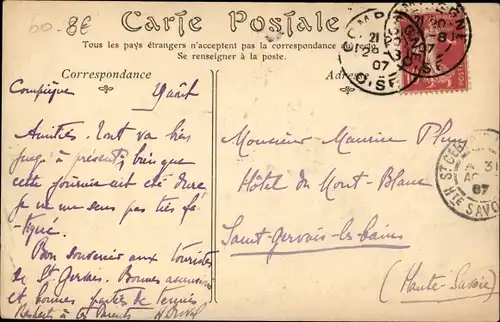 60.8€
Carte Postale
Tous les pays étrangers n'acceptent pas la correspondance
Se renseigner à la poste.
Correspondance
Adresse
Compiègne
29 août
Amitiés. Tout va bien
jusqu'à présent, bien que
cette journée ait été dure,
je ne me sens pas très fa-
tigué.
Bon souvenir aux touristes
de St Gervais. Bonnes ascensions
et bonnes parties de tennis
Respects à tes Parents
Monsieur Maurice
Hôtel du Mont-Blanc
Saint-Gervais-les-bains
(Haute-Savoie)
COMPIÈGNE
07
OISE
31
07
HTE SAVOIE